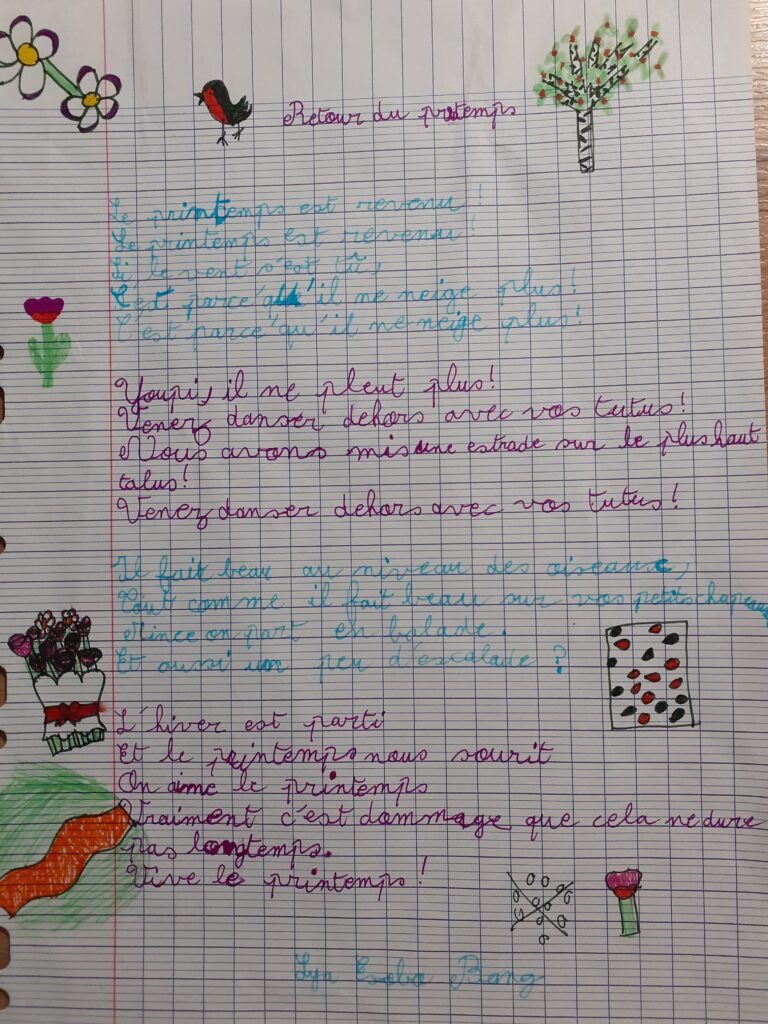 Retour du printemps
Le printemps est revenu !
Le printemps est revenu !
Si le vent s'est tû,
C'est parce qu'il ne neige plus !
C'est parce'qu'il ne neige plus !
Youpi, il ne pleut plus !
Venez danser dehors avec vos tutus !
Nous avons mis une estrade sur le plus haut
talus !
Venez danser dehors avec vos tutus !
Il fait beau au niveau des oiseaux,
Tout comme il fait beau sur vos petits chapeaux
Mince on part en balade.
Et aussi un peu d'escalade ?
L'hiver est parti
Et le printemps nous sourit
On aime le printemps
Vraiment c'est dommage que cela ne dure
pas longtemps.
Vive le printemps !